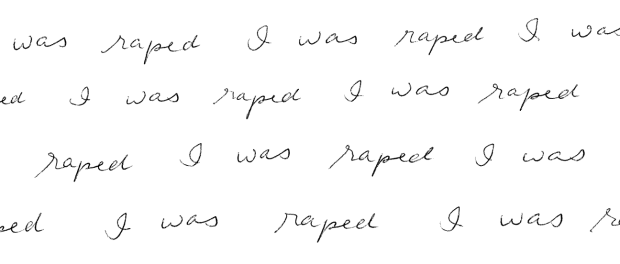 was raped I was raped I was
ed I was raped I was raped
raped I was raped I was
ped I was raped I was r